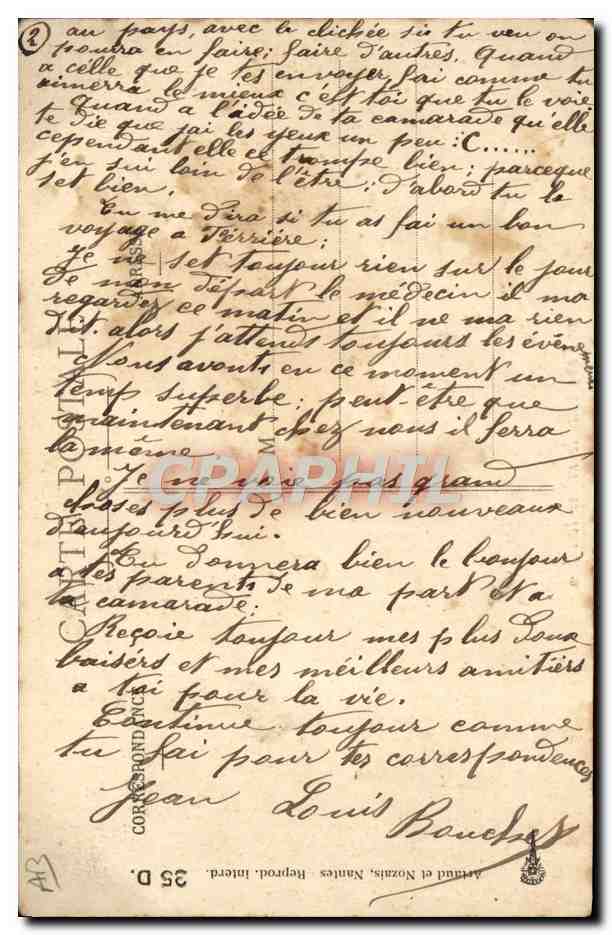 2
au pays, avec la clichée si tu veu on
pourra en faire; faire d'autres. Quand
a celle que je tes envoyer fai comme tu
aimerra le mieux c'est toi que tu le voie
Quand a l'idée de ta camarade qu'elle
te die que j'ai les yeux un peu : C......
cependant elle ce trompe bien; parceque
j'en sui loin de l'être; d'abord tu le
set bien.
Tu me dira si tu as fai un bon
voyage a Ferrière;
Je ne set toujour rien sur le jour
de mon départ le médecin il ma
regarder ce matin et il ne ma rien
dit. alors j'attends toujours les événements
Nous avonts en ce moment un
temp superbe; peut être que
maintenant chez nous il serra
la même
Je ne voie pas grand
choses plus de bien nouveaux
d'aujourd'hui.
Tu donnera bien le bonjour
a tes parents de ma part et a
ta camarade;
Reçoie toujour mes plus doux
baisérs et mes meilleurs amitiérs
a toi pour la vie.
Continue toujour comme
tu fai pour tes correspondences
Jean Louis Bouchet
CARTE POSTALE
CORRESPONDANCE
ADRESSE
CPAPHIL
35 D.
Artaud et Nozais, Nantes - Reprod. interd.